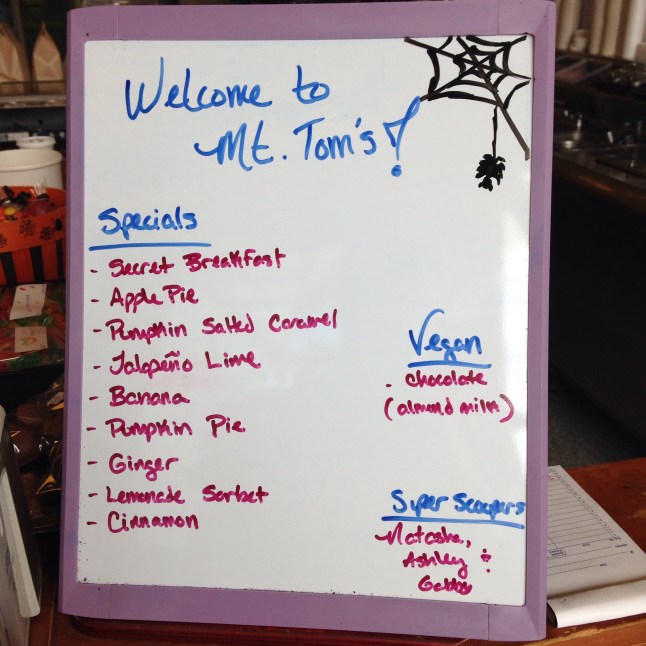 Welcome to
Mt. Tom's!
Specials
- Secret Breakfast
- Apple Pie
- Pumpkin Salted Caramel
- Jalapeño Lime
- Banana
- Pumpkin Pie
- Ginger
- Lemonade Sorbet
- Cinnamon
Vegan
- chocolate
(almond milk)
Super Scoopers
Natasha,
Ashley &
Gabby